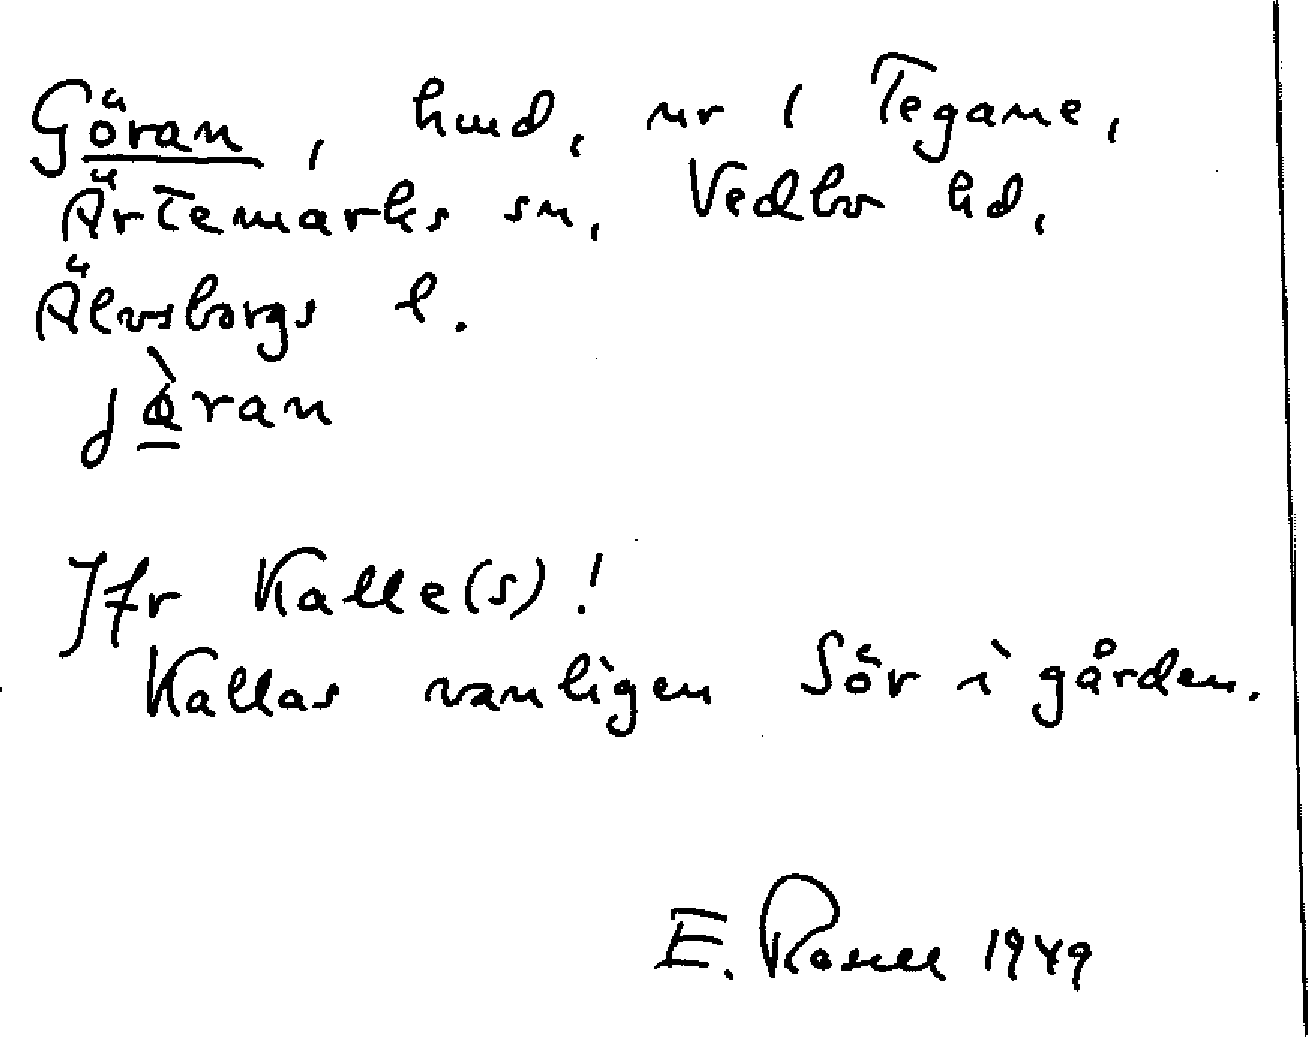 Göran, hmd, nr 1 Tegane,
Ärtemarks sn, Vedbo hd,
Älvsborgs l.
jὰran
Jfr Kalle(s)!
Kallas vanligen Sör i gården.
E. Rosell 1949